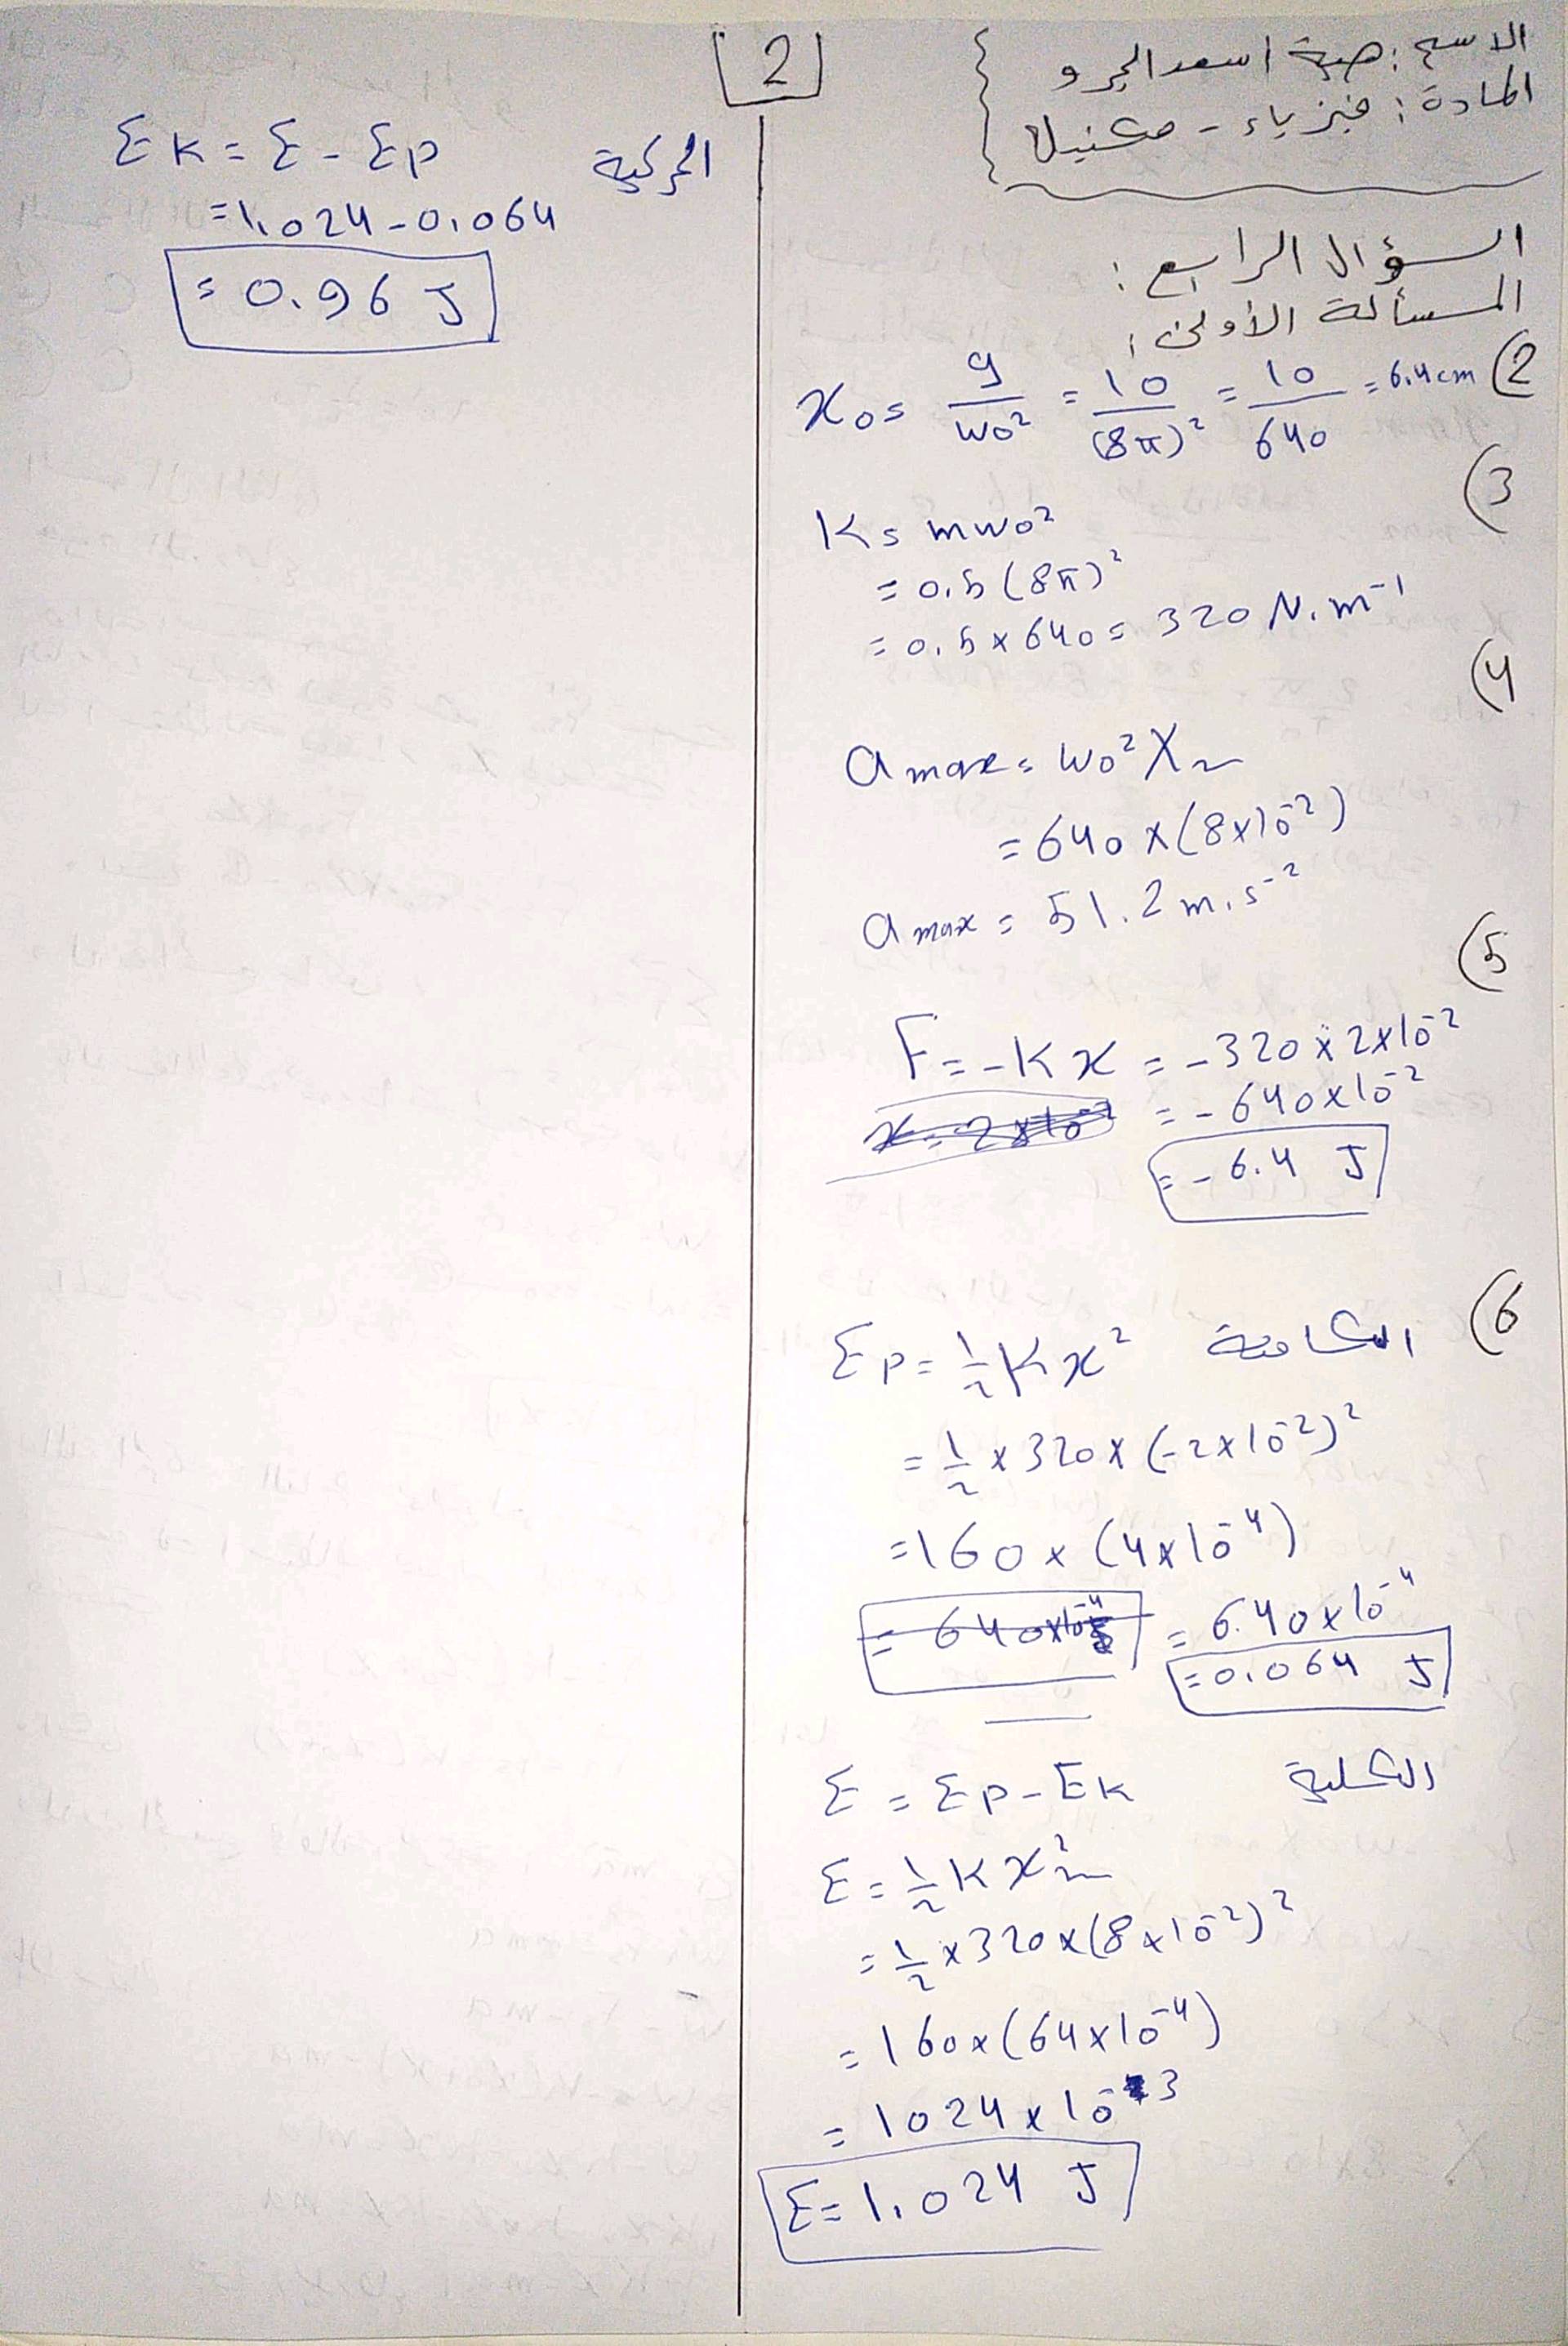 [2]
الاسم: هبة اسعد الجرو
المادة: فيزياء - مكنيك
السؤال الرابع:
المسألة الأولى:
(2 x₀ = g/ω₀² = 10/(8π)² = 10/640 = 6.4 cm
(3
K = mω₀²
= 0.5 (8π)²
= 0.5 × 640 = 320 N.m⁻¹
(4
a max = ω₀² Xm
= 640 × (8×10⁻²)
a max = 51.2 m.s⁻²
(5
F = -K x = -320 × 2×10⁻²
= -640×10⁻²
= -6.4 J
(6
الكامنة Ep = ½ K x²
= ½ × 320 × (-2×10⁻²)²
= 160 × (4×10⁻⁴)
= 6.40×10⁻⁴
= 0.064 J
الكلية E = Ep - Ek
E = ½ K x²m
= ½ × 320 × (8×10⁻²)²
= 160 × (64×10⁻⁴)
= 1024 × 10⁻³
E = 1.024 J
الحركية Ek = E - Ep
= 1.024 - 0.064
= 0.96 J